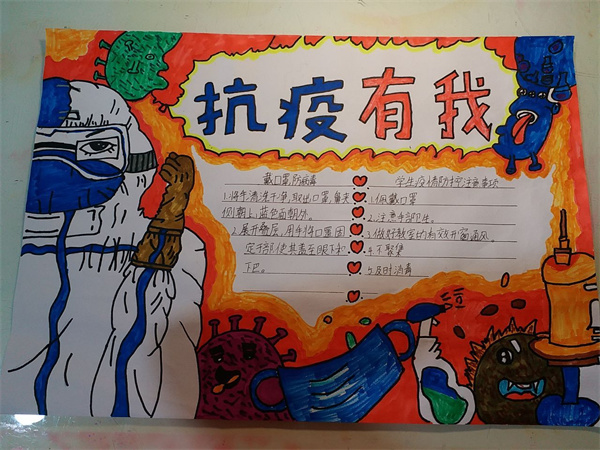 抗疫有我
戴口罩,防病毒
1.将手清洗干净,取出口罩,鼻夹
侧朝上,蓝色面朝外。
2.展开褶层,用手将口罩固
定于部使其盖至眼下和
下巴。
学生疫情防控注意事项
1.佩戴口罩
2.注意手部卫生。
3.做好教室的有效开窗通风。
4.不聚集
5.及时消毒